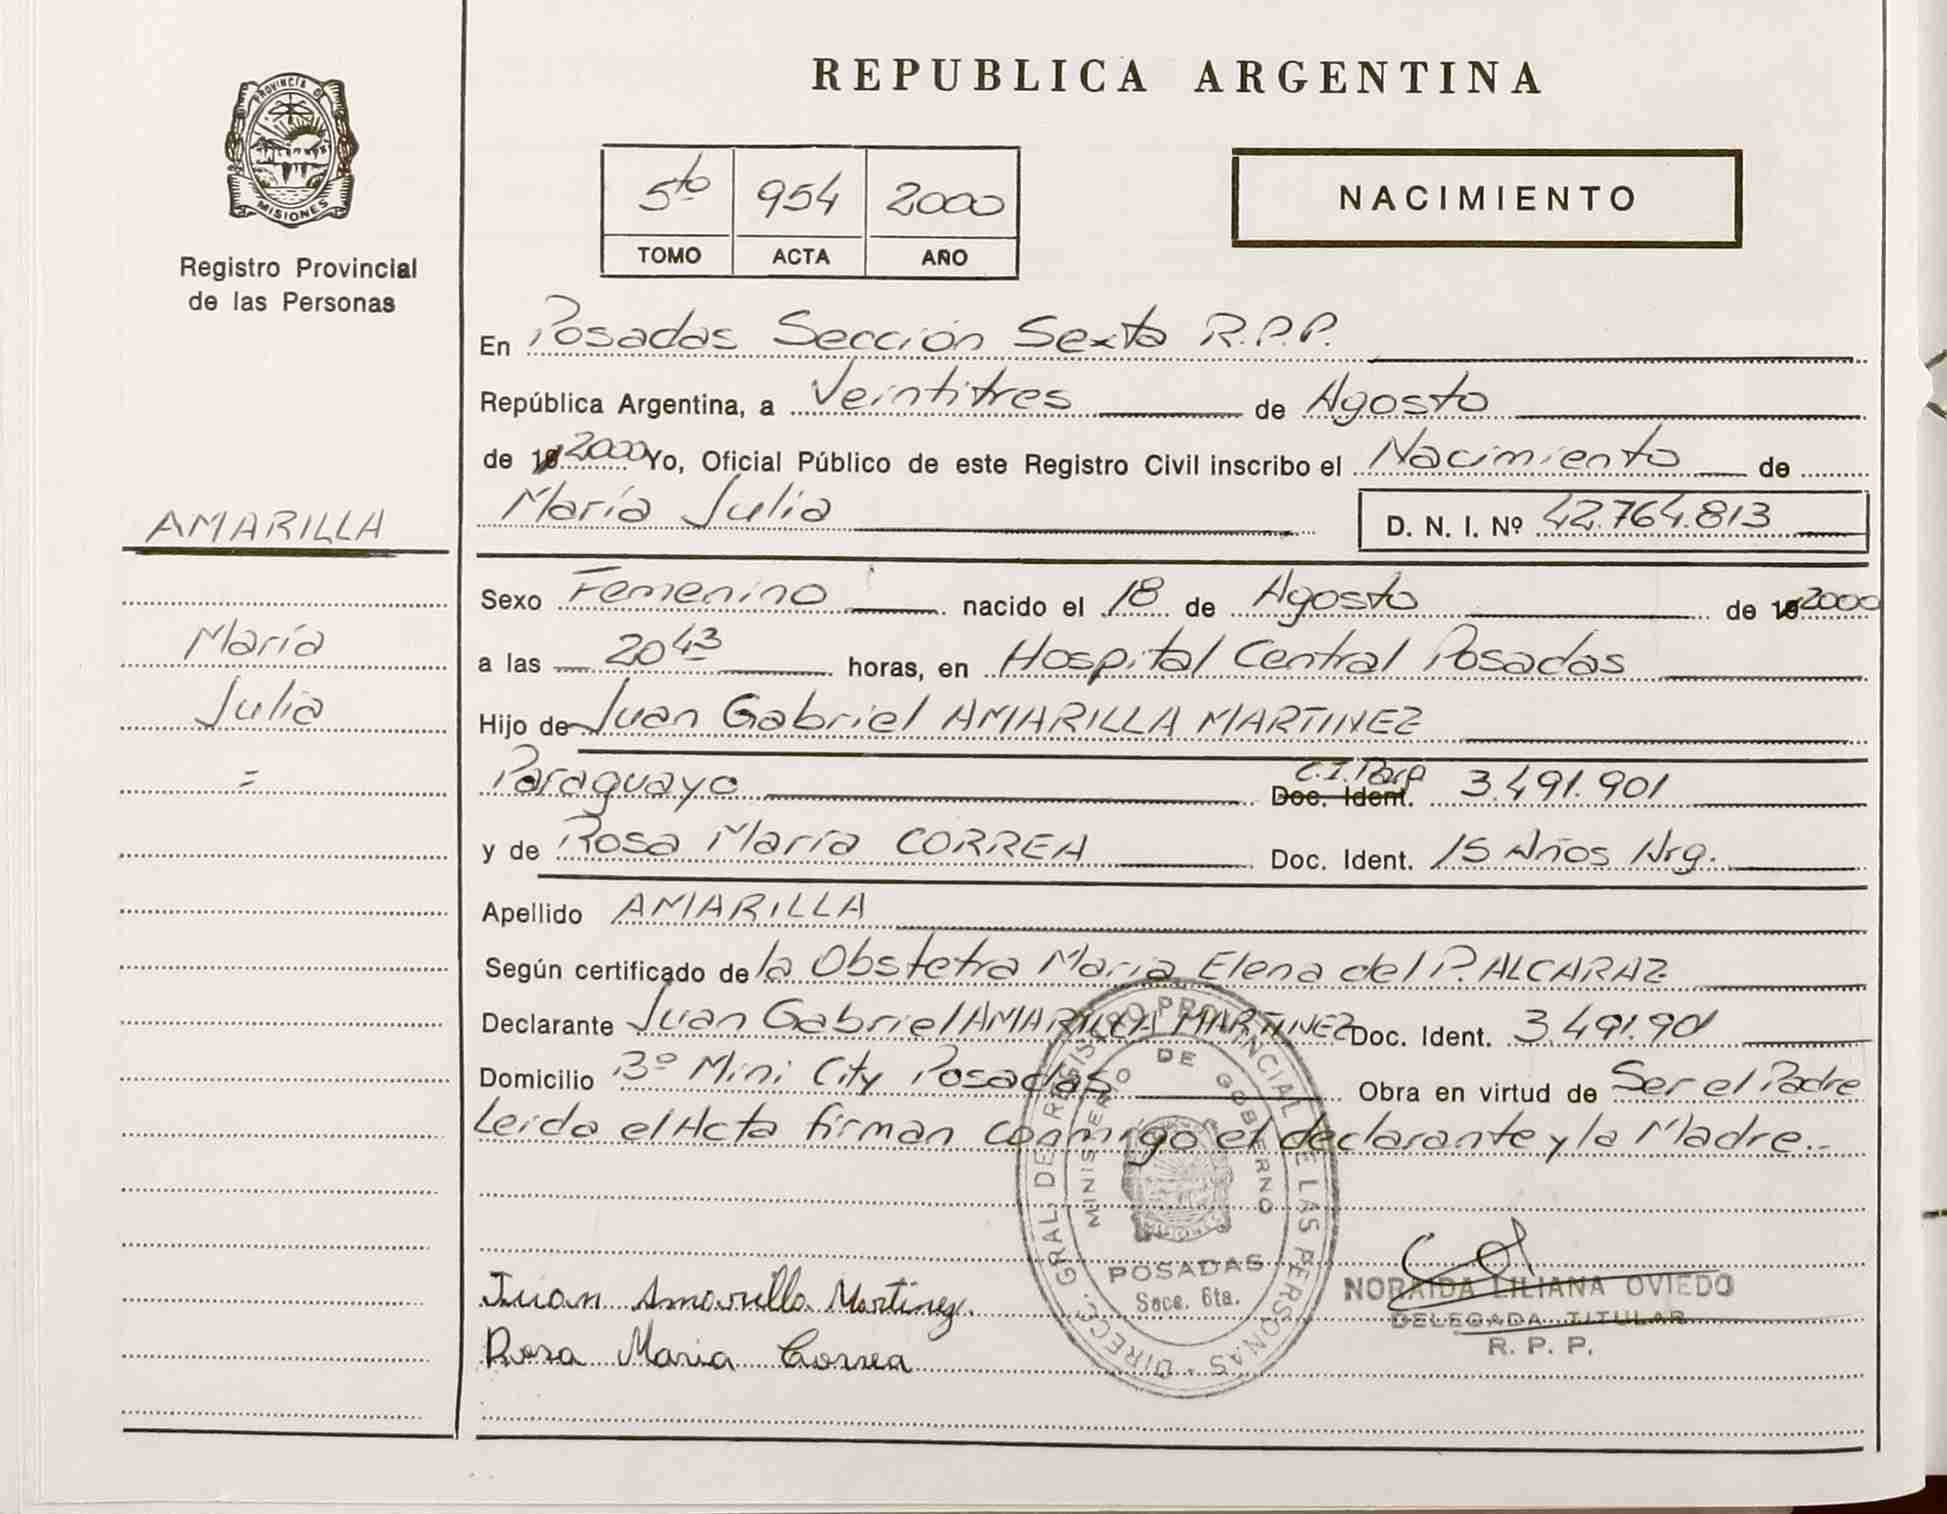 PROVINCIA D
MISIONES
Registro Provincial
de las Personas
AMARILLA
María
Julia
=
REPUBLICA ARGENTINA
5to 954 2000
TOMO ACTA AÑO
NACIMIENTO
En Posadas Sección Sexta R.P.P.
República Argentina, a Veintitres de Agosto
de 19 2000 Yo, Oficial Público de este Registro Civil inscribo el Nacimiento de
María Julia D. N. I. Nº 42.764.813
Sexo Femenino nacido el 18 de Agosto de 19 2000
a las 20 43 horas, en Hospital Central Posadas
Hijo de Juan Gabriel AMARILLA MARTINEZ
Paraguayo Doc. Ident. C.I. Parg 3.491.901
y de Rosa María CORREA Doc. Ident. 15 Años Arg.
Apellido AMARILLA
Según certificado de la Obstetra María Elena del P. ALCARAZ
Declarante Juan Gabriel AMARILLA MARTINEZ Doc. Ident. 3.491.901
Domicilio Bº Mini City Posadas Obra en virtud de Ser el Padre
Leída el Acta firman conmigo el declarante y la Madre.-
DIRECC. GRAL. DE REGISTRO PROVINCIAL DE LAS PERSONAS
MINISTERIO DE GOBIERNO
MISIONES
POSADAS
Secc. 6ta.
Juan Amarilla Martinez
Rosa Maria Correa
NORAIDA LILIANA OVIEDO
DELEGADA TITULAR
R. P. P.